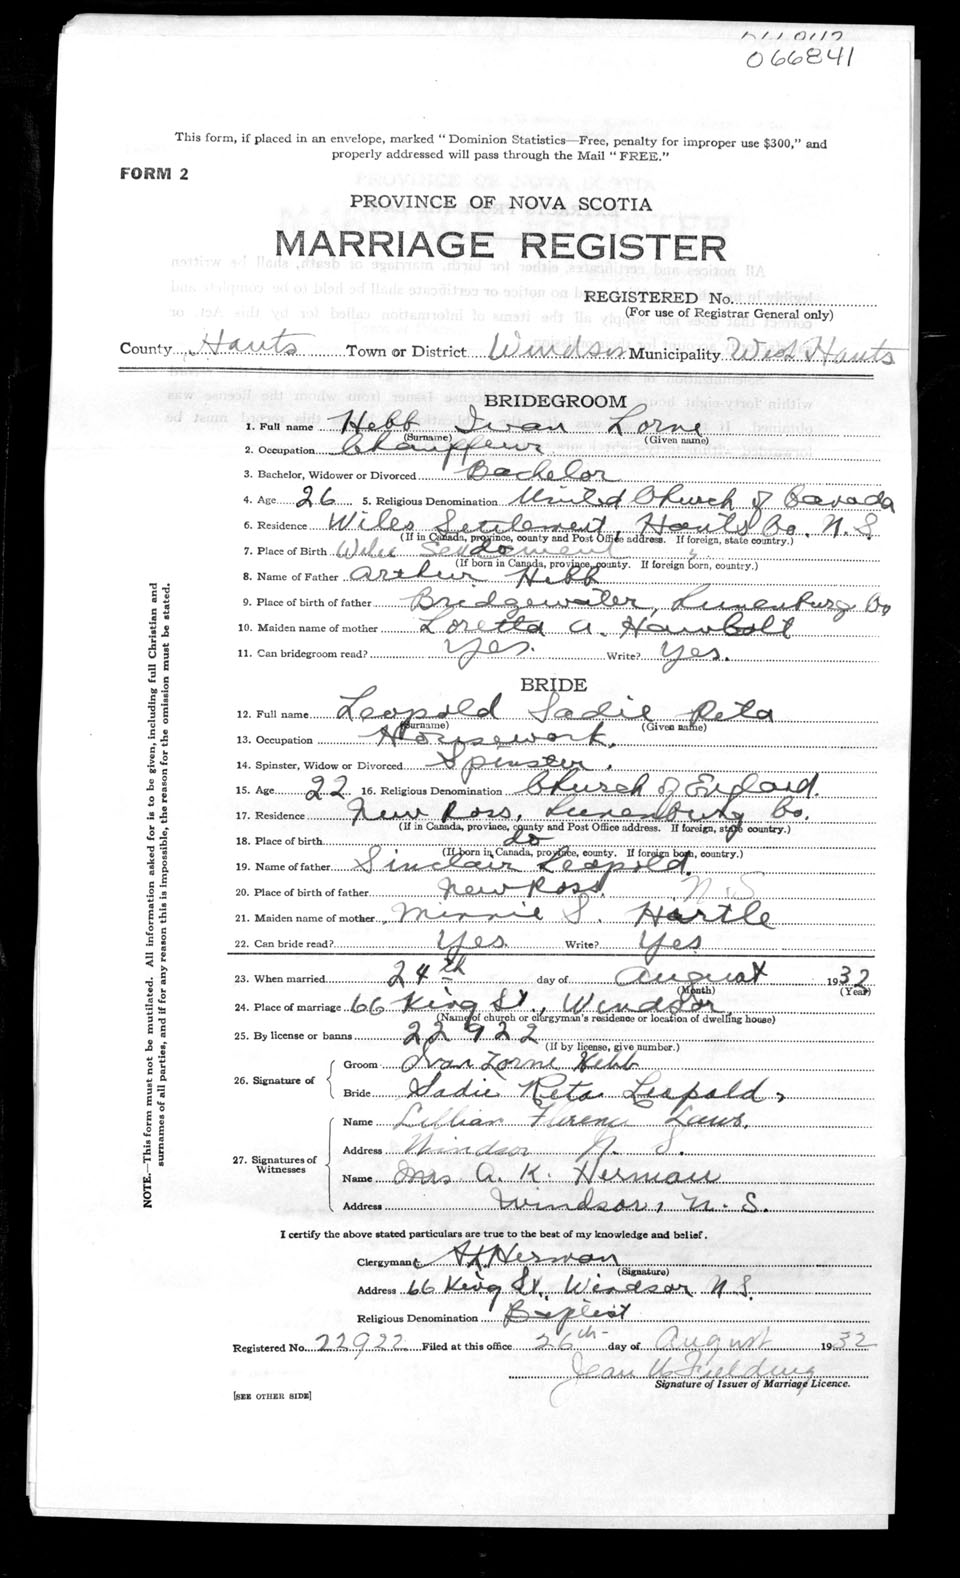 066841
This form, if placed in an envelope, marked " Dominion Statistics—Free, penalty for improper use $300," and
properly addressed will pass through the Mail " FREE."
FORM 2
PROVINCE OF NOVA SCOTIA
MARRIAGE REGISTER
REGISTERED No.
(For use of Registrar General only)
County Hants Town or District Windsor Municipality West Hants
BRIDEGROOM
1. Full name Hebb Ivan Lorne
(Surname) (Given name)
2. Occupation Chauffeur
3. Bachelor, Widower or Divorced Bachelor
4. Age 26 5. Religious Denomination United Church of Canada
6. Residence Wiles Settlement, Hants Co. N.S.
(If in Canada, province, county and Post Office address. If foreign, state country.)
7. Place of Birth Wiles Settlement do "
(If born in Canada, province, county. If foreign born, country.)
8. Name of Father Arthur Hebb
9. Place of birth of father Bridgewater, Lunenburg Co
10. Maiden name of mother Loretta A. Hawbolt
11. Can bridegroom read? Yes. Write? Yes.
BRIDE
12. Full name Leopold Sadie Reta
(Surname) (Given name)
13. Occupation Housework.
14. Spinster, Widow or Divorced Spinster.
15. Age 22 16. Religious Denomination Church of England.
17. Residence New Ross, Lunenburg Co.
(If in Canada, province, county and Post Office address. If foreign, state country.)
18. Place of birth do
(If born in Canada, province, county. If foreign born, country.)
19. Name of father Sinclair Leopold.
20. Place of birth of father New Ross, N.S
21. Maiden name of mother Minnie S. Hartle
22. Can bride read? Yes. Write? Yes
23. When married 24th day of August 1932
(Month) (Year)
24. Place of marriage 66 King St., Windsor,
(Name of church or clergyman's residence or location of dwelling house)
25. By license or banns 22922
(If by license, give number.)
26. Signature of Groom Ivan Lorne Hebb
Bride Sadie Reta Leopold,
27. Signatures of Witnesses Name Lillian Florence Laws.
Address Windsor N. S.
Name Mrs A. K. Herman
Address Windsor, N. S.
I certify the above stated particulars are true to the best of my knowledge and belief.
Clergyman AK Herman
(Signature)
Address 66 King St. Windsor N.S.
Religious Denomination Baptist
Registered No. 22922 Filed at this office 26th day of August 1932
Jean W Fielding
Signature of Issuer of Marriage Licence.
[SEE OTHER SIDE]
NOTE.—This form must not be mutilated. All information asked for is to be given, including full Christian and
surnames of all parties, and if for any reason this is impossible, the reason for the omission must be stated.